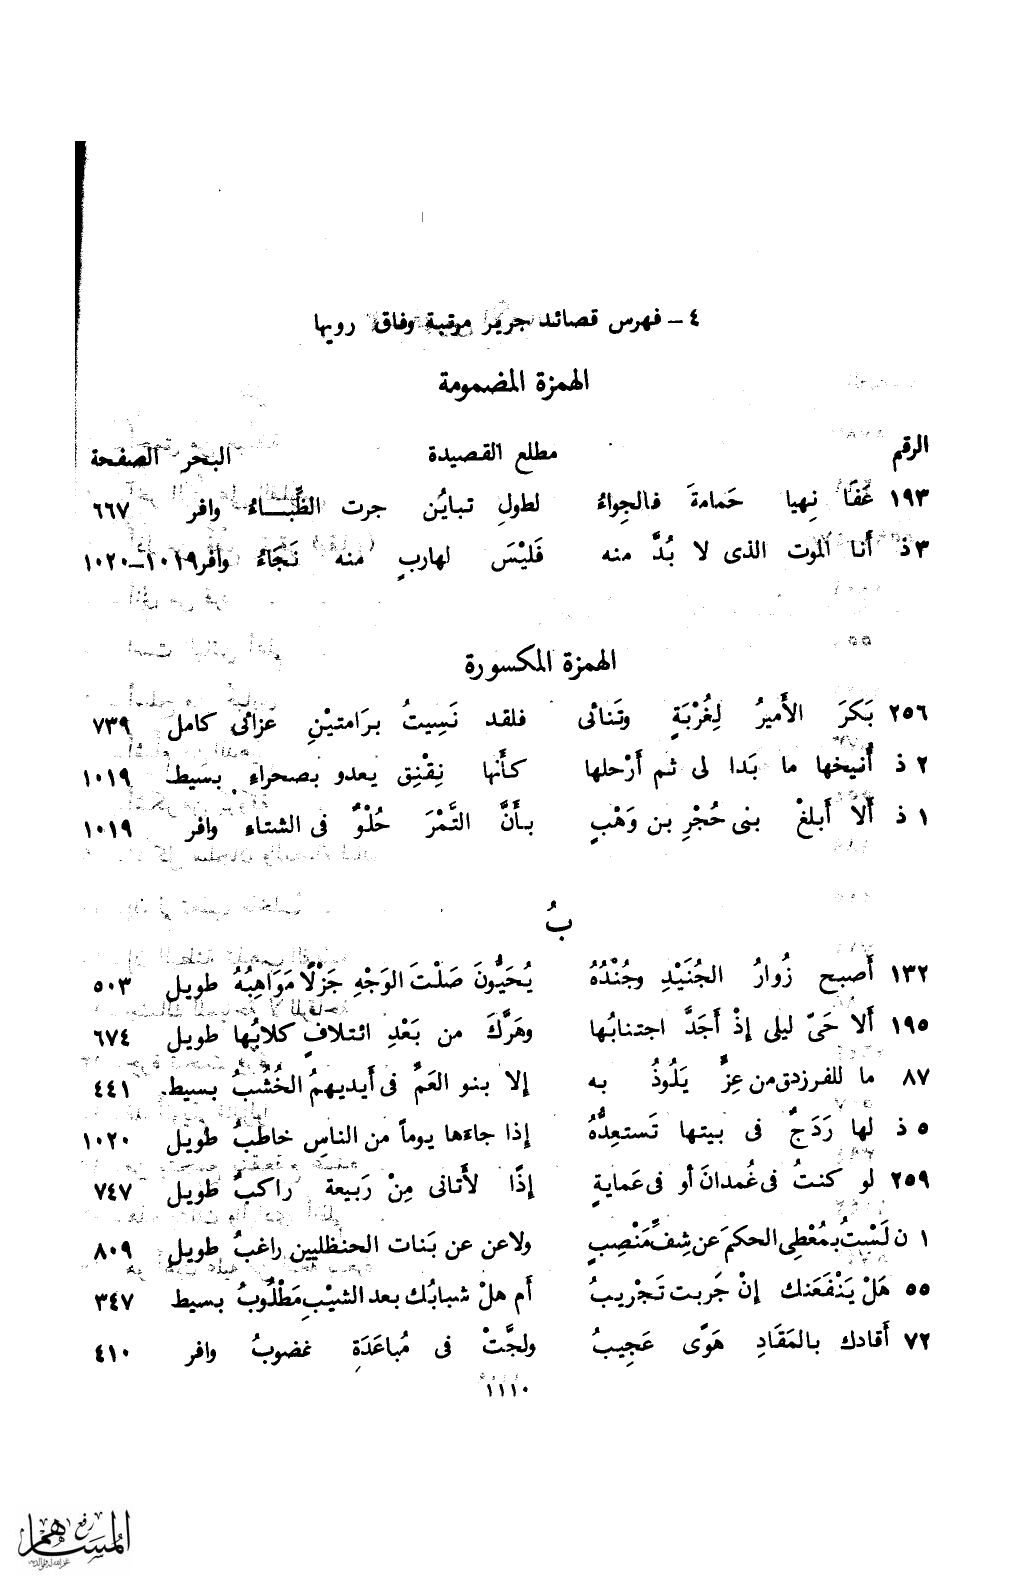 ٤ – فهرس قصائد جرير مرتبة وفاق رويها
الهمزة المضمومة
الرقم مطلع القصيدة البحر الصفحة
١٩٣ عَفَا نِهيا حَمامةَ فالجِواءُ لطولِ تبايُن جرت الظِّبَاءُ وافر ٦٦٧
٣ ذ أَنا الموت الذى لا بُدَّ منه فَليْسَ لهاربٍ منه نَجَاءُ وافر ١٠١٩–١٠٢٠
الهمزة المكسورة
٢٥٦ بَكَرَ الأَميرُ لِغُرْبَةٍ وتَنائى فلقد نَسِيتُ برَامتيْنِ عزائى كامل ٧٣٩
٢ ذ أُنيخها ما بَدا لى ثم أَرْحلها كأَنها نِقْنِق يعدو بصحراءِ بسيط ١٠١٩
١ ذ أَلا أَبلغْ بنى حُجْرِ بن وَهْبٍ بأَنَّ التَّمْرَ حُلْوٌ فى الشتاء وافر ١٠١٩
بُ
١٣٢ أَصبح زُوارُ الجُنَيْدِ وجُنْدُهُ يُحَيُّونَ صَلْتَ الوَجْهِ جَزْلًا مَوَاهِبُهُ طويل ٥٠٣
١٩٥ أَلا حَىّ ليلى إِذْ أَجَدَّ اجتنابُها وهَرَّكَ من بَعْدِ ائتلافٍ كلابُها طويل ٦٧٤
٨٧ ما للفرزدق من عِزٍّ يَلُوذُ به إلا بنو العَمِّ فى أَيديهمُ الخُشُبُ بسيط ٤٤١
٥ ذ لها رَدَجٌ فى بيتها تَستعِدُّهُ إذا جاءَها يوماً من الناسِ خاطبُ طويل ١٠٢٠
٢٥٩ لو كنتُ فى غُمدانَ أو فى عَمايةٍ إذًا لأَتانى مِنْ رَبيعة راكبُ طويل ٧٤٧
١ ن لَسْتُ بمُعْطِى الحكمَ عن شِفِّ مَنْصِبٍ ولاعن عن بَنات الحنظليين راغبُ طويل ٨٠٩
٥٥ هَلْ يَنْفَعَنك إنْ جَربت تَجْريبُ أَم هلْ شبابُك بعد الشيْبِ مَطْلُوبُ بسيط ٣٤٧
٧٢ أَقادك بالمَقَادِ هَوًى عَجِيبُ ولجَّتْ فى مُباعَدَةٍ غضوبُ وافر ٤١٠
١١١٠